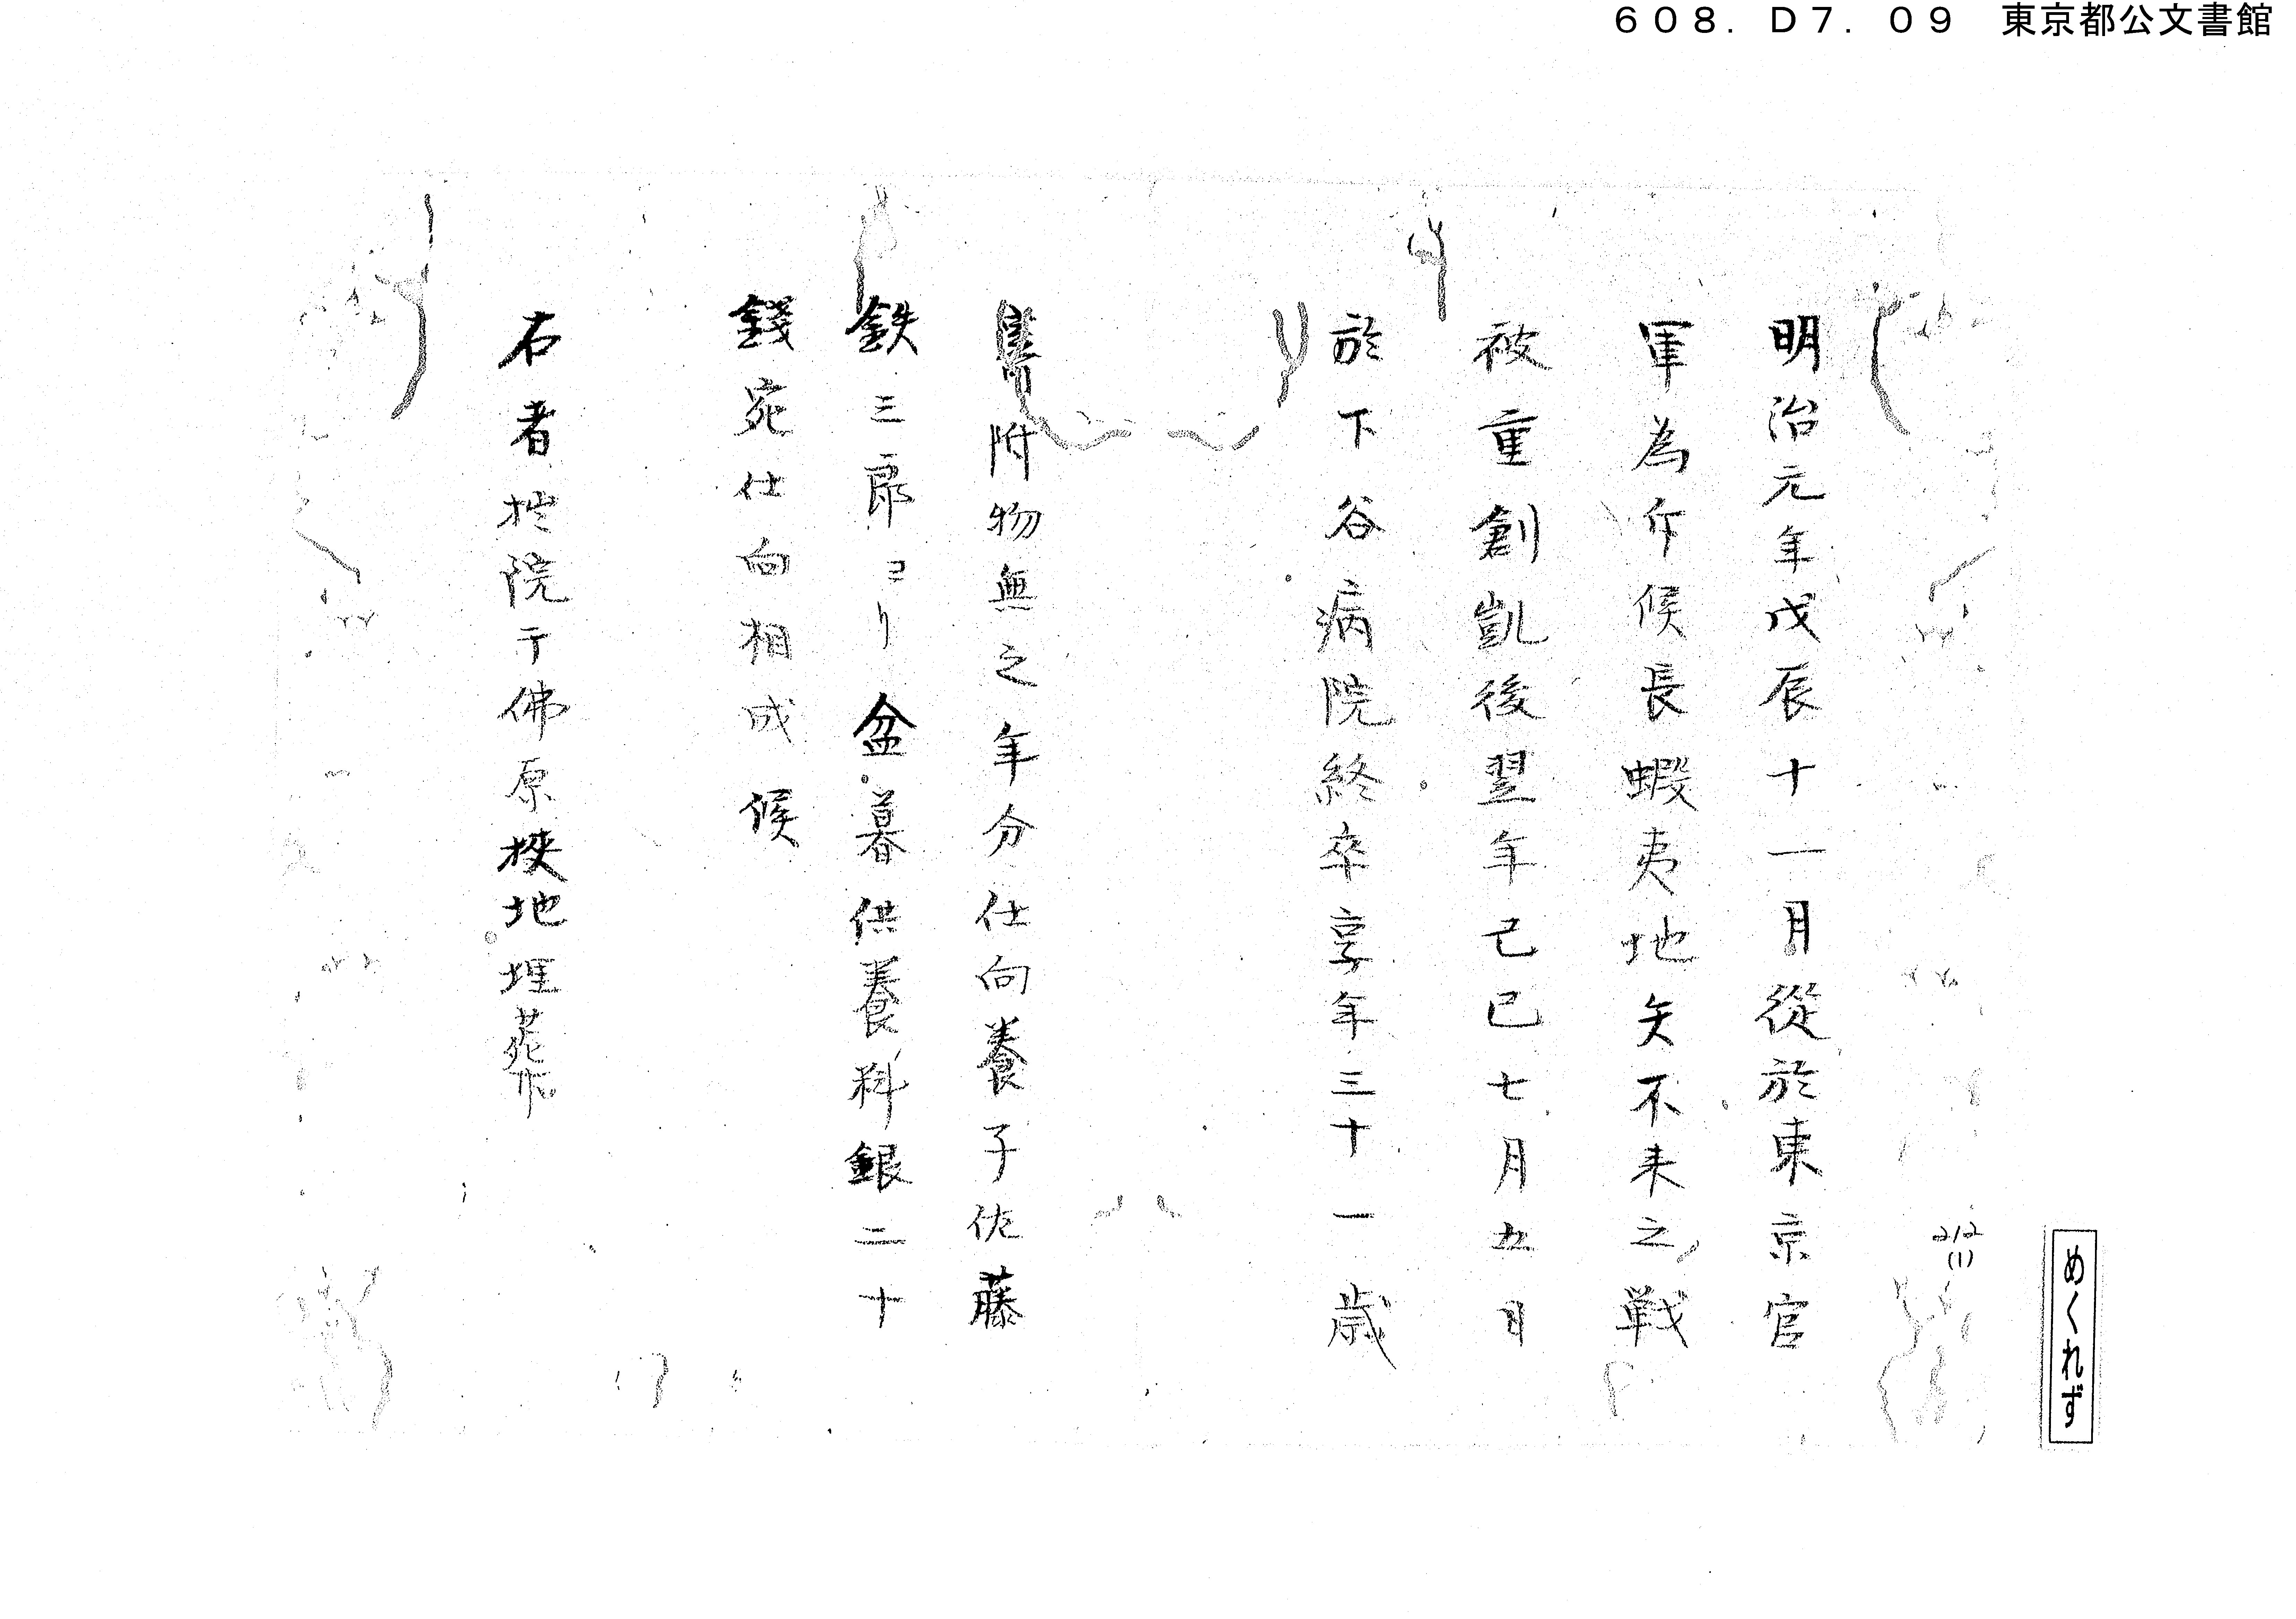 608. D7. 09 東京都公文書館
明治元年戊辰十一月從於東京官
軍為斥候長蝦夷地矢不来之戦
被重創凱後翌年己巳七月五日
於下谷病院終卒享年三十一歳
寄附物無之年分仕向養子佐藤
鉄三郎ヨリ盆暮供養料銀二十
錢宛仕向相成候
右者於院千佛原挾地埋葬
212
(1)
めくれず